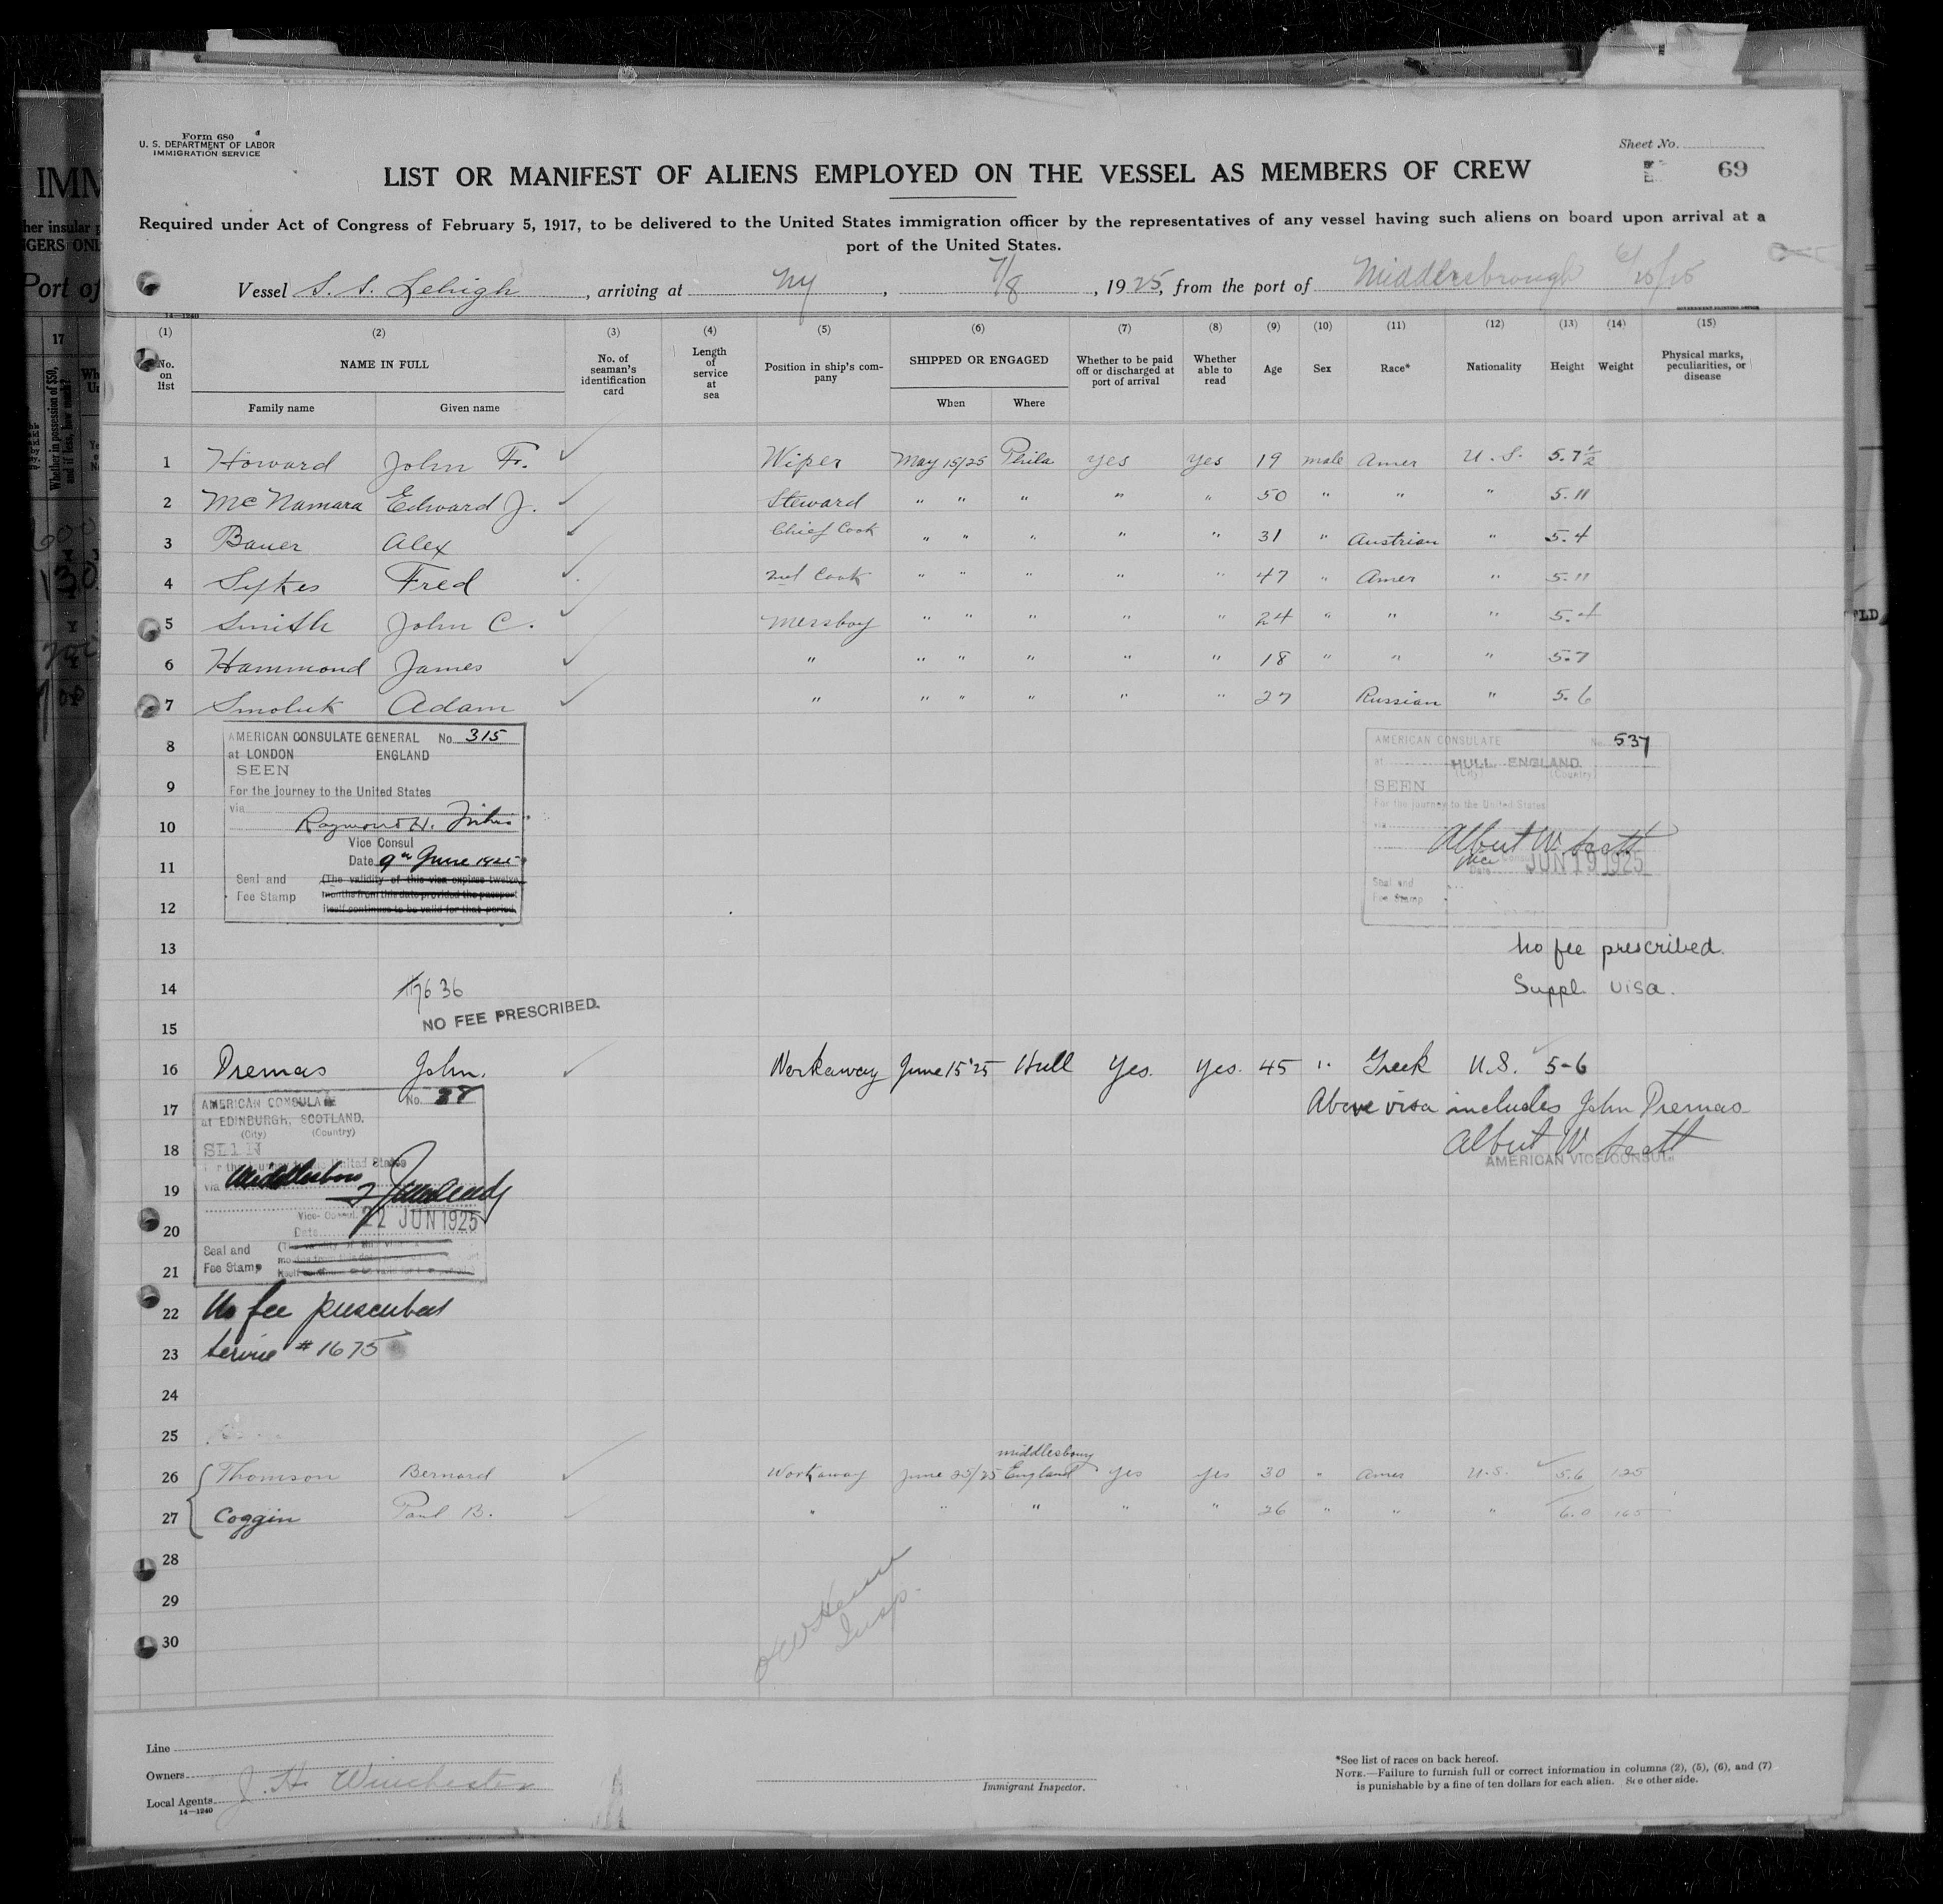 Form 680 a
U. S. DEPARTMENT OF LABOR
IMMIGRATION SERVICE
Sheet No.
69
LIST OR MANIFEST OF ALIENS EMPLOYED ON THE VESSEL AS MEMBERS OF CREW
Required under Act of Congress of February 5, 1917, to be delivered to the United States immigration officer by the representatives of any vessel having such aliens on board upon arrival at a
port of the United States.
Vessel S. S. Lehigh, arriving at NY, 7/8, 1925, from the port of Middlesbrough 6/25/25
14—1240
(1) (2) (3) (4) (5) (6) (7) (8) (9) (10) (11) (12) (13) (14) (15)
No. on list NAME IN FULL Family name Given name No. of seaman's identification card Length of service at sea Position in ship's company SHIPPED OR ENGAGED When Where Whether to be paid off or discharged at port of arrival Whether able to read Age Sex Race* Nationality Height Weight Physical marks, peculiarities, or disease
1 Howard John Fr. Wiper May 15/25 Phila yes yes 19 male Amer U. S. 5.7½
2 McNamara Edward J. Steward " " " " " 50 " " " 5.11
3 Bauer Alex Chief Cook " " " " " 31 " Austrian " 5.4
4 Sykes Fred 2nd Cook " " " " " 47 " Amer " 5.11
5 Smith John C. Messboy " " " " " 24 " " " 5.4
6 Hammond James " " " " " " 18 " " " 5.7
7 Smoluk Adam " " " " " " 27 Russian " 5.6
8
AMERICAN CONSULATE GENERAL No. 315
at LONDON ENGLAND
SEEN
For the journey to the United States
via
Raymond H.
Vice Consul
Date 9th June 1925
Seal and Fee Stamp
(The validity of this visa expires twelve
months from this date provided the passport
itself continues to be valid for that period.
AMERICAN CONSULATE No. 537
at HULL ENGLAND.
(City) (Country)
SEEN
For the journey to the United States
via
Albert W. Scott
Vice Consul
Date JUN 19 1925
Seal and
Fee Stamp
9
10
11
12
13 No fee prescribed.
14 Suppl. visa.
7636
NO FEE PRESCRIBED.
15
16 Premas John. Workaway June 15 '25 Hull Yes. Yes. 45 " Greek U.S. 5-6
17 Above visa includes John Premas
18 Albert W. Scott
AMERICAN VICE CONSUL
AMERICAN CONSULATE No. 38
at EDINBURGH, SCOTLAND.
(City) (Country)
SEEN
For the journey to the United States
via Middlesboro
Vice-Consul.
Date 22 JUN 1925
Seal and
Fee Stamp
19
20
21
22 No fee prescribed
23 Service # 1675
24
25
26 Thomson Bernard Workaway June 25/25 Middlesboury England yes yes 30 " Amer U.S. 5.6 125
27 Coggin Paul B. " " " " " 26 " " " 6.0 165
28
29
30
Insp.
Line
Owners
Local Agents J. H. Winchester
14—1240
Immigrant Inspector.
*See list of races on back hereof.
NOTE.—Failure to furnish full or correct information in columns (2), (5), (6), and (7)
is punishable by a fine of ten dollars for each alien. See other side.